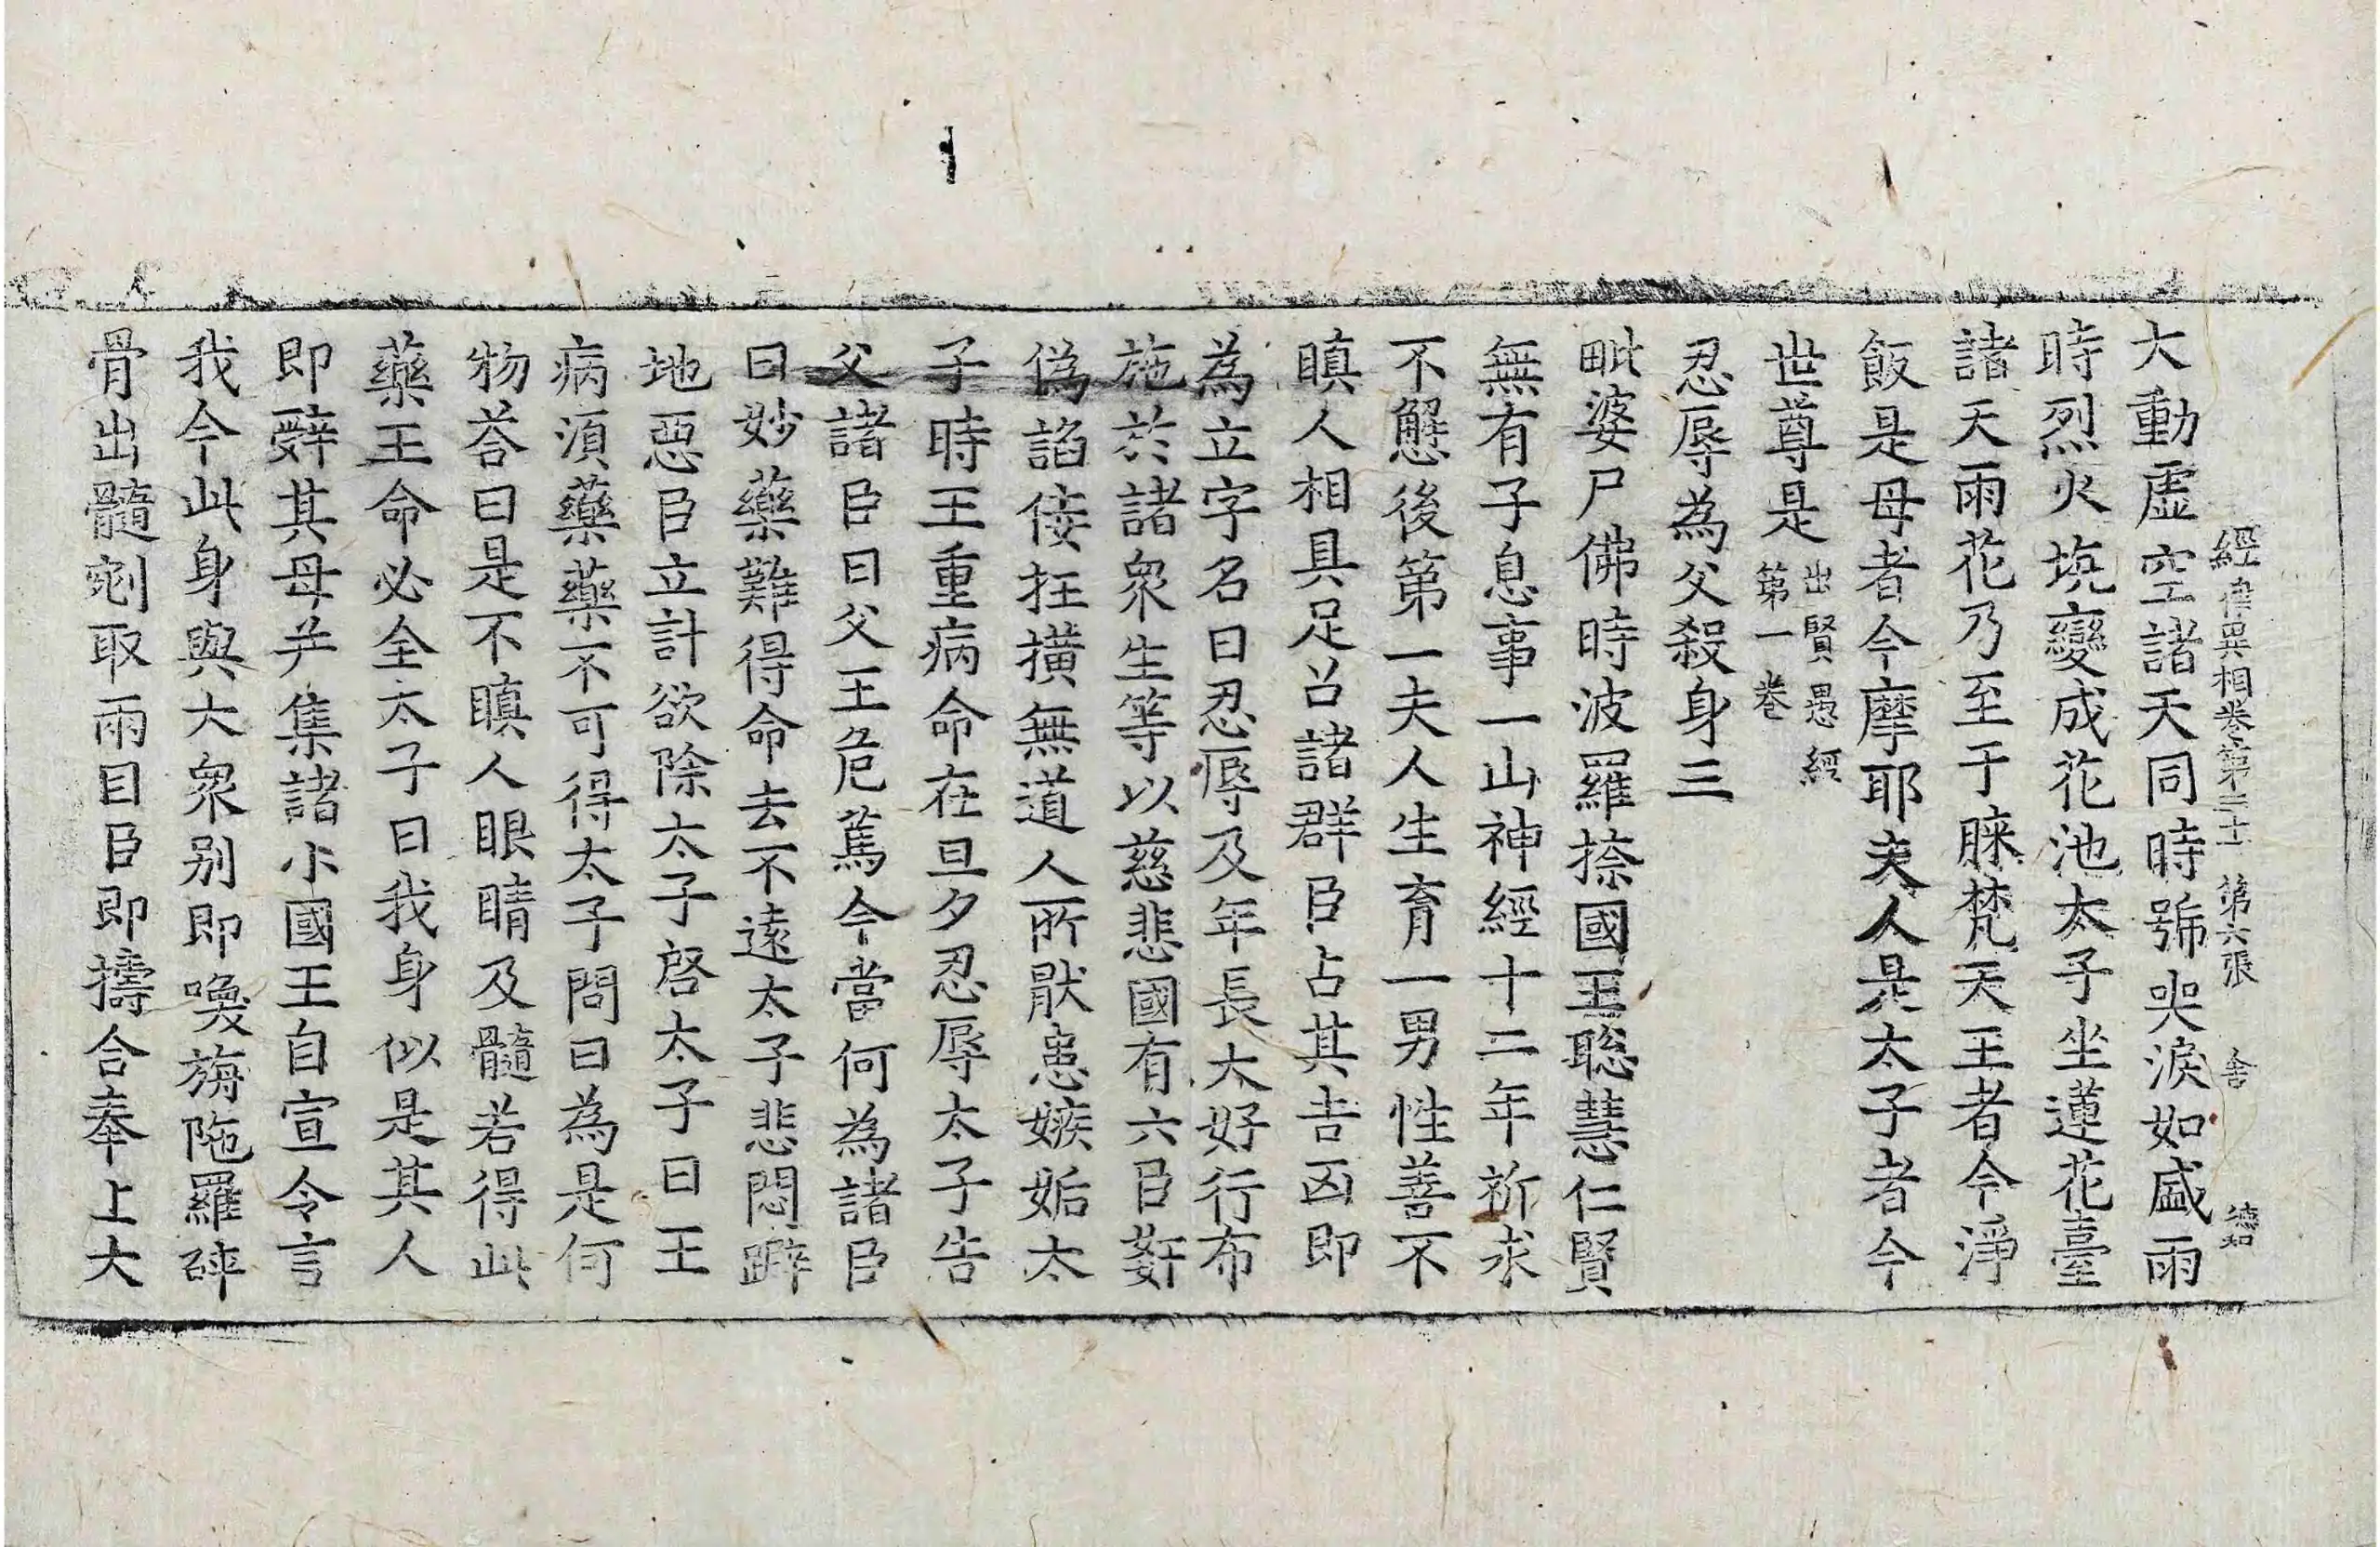 經律異相卷第三十一 第六張 舍 德和
大動虛空諸天同時號哭淚如盛雨
時烈火坑變成花池太子坐蓮花臺
諸天雨花乃至于膝梵天王者今淨
飯是母者今摩耶夫人是太子者今
世尊是出賢愚經第一卷
忍辱為父殺身三
毗婆尸佛時波羅捺國王聰慧仁賢
無有子息事一山神經十二年祈求
不懈後第一夫人生育一男性善不
瞋人相具足召諸群臣占其吉凶即
為立字名曰忍辱及年長大好行布
施於諸眾生等以慈悲國有六臣姧
偽諂佞抂撗無道人所猒患嫉妬太
子時王重病命在旦夕忍辱太子告
父諸臣曰父王危篤今當何為諸臣
曰妙藥難得命去不遠太子悲悶躃
地惡臣立計欲除太子啓太子曰王
病湏藥藥不可得太子問曰為是何
物荅曰是不瞋人眼睛及髓若得此
藥王命必全太子曰我身似是其人
即辭其母并集諸小國王自宣令言
我今此身與大眾别即喚旃陁羅碎
骨出髓剜取兩目臣即擣合奉上大